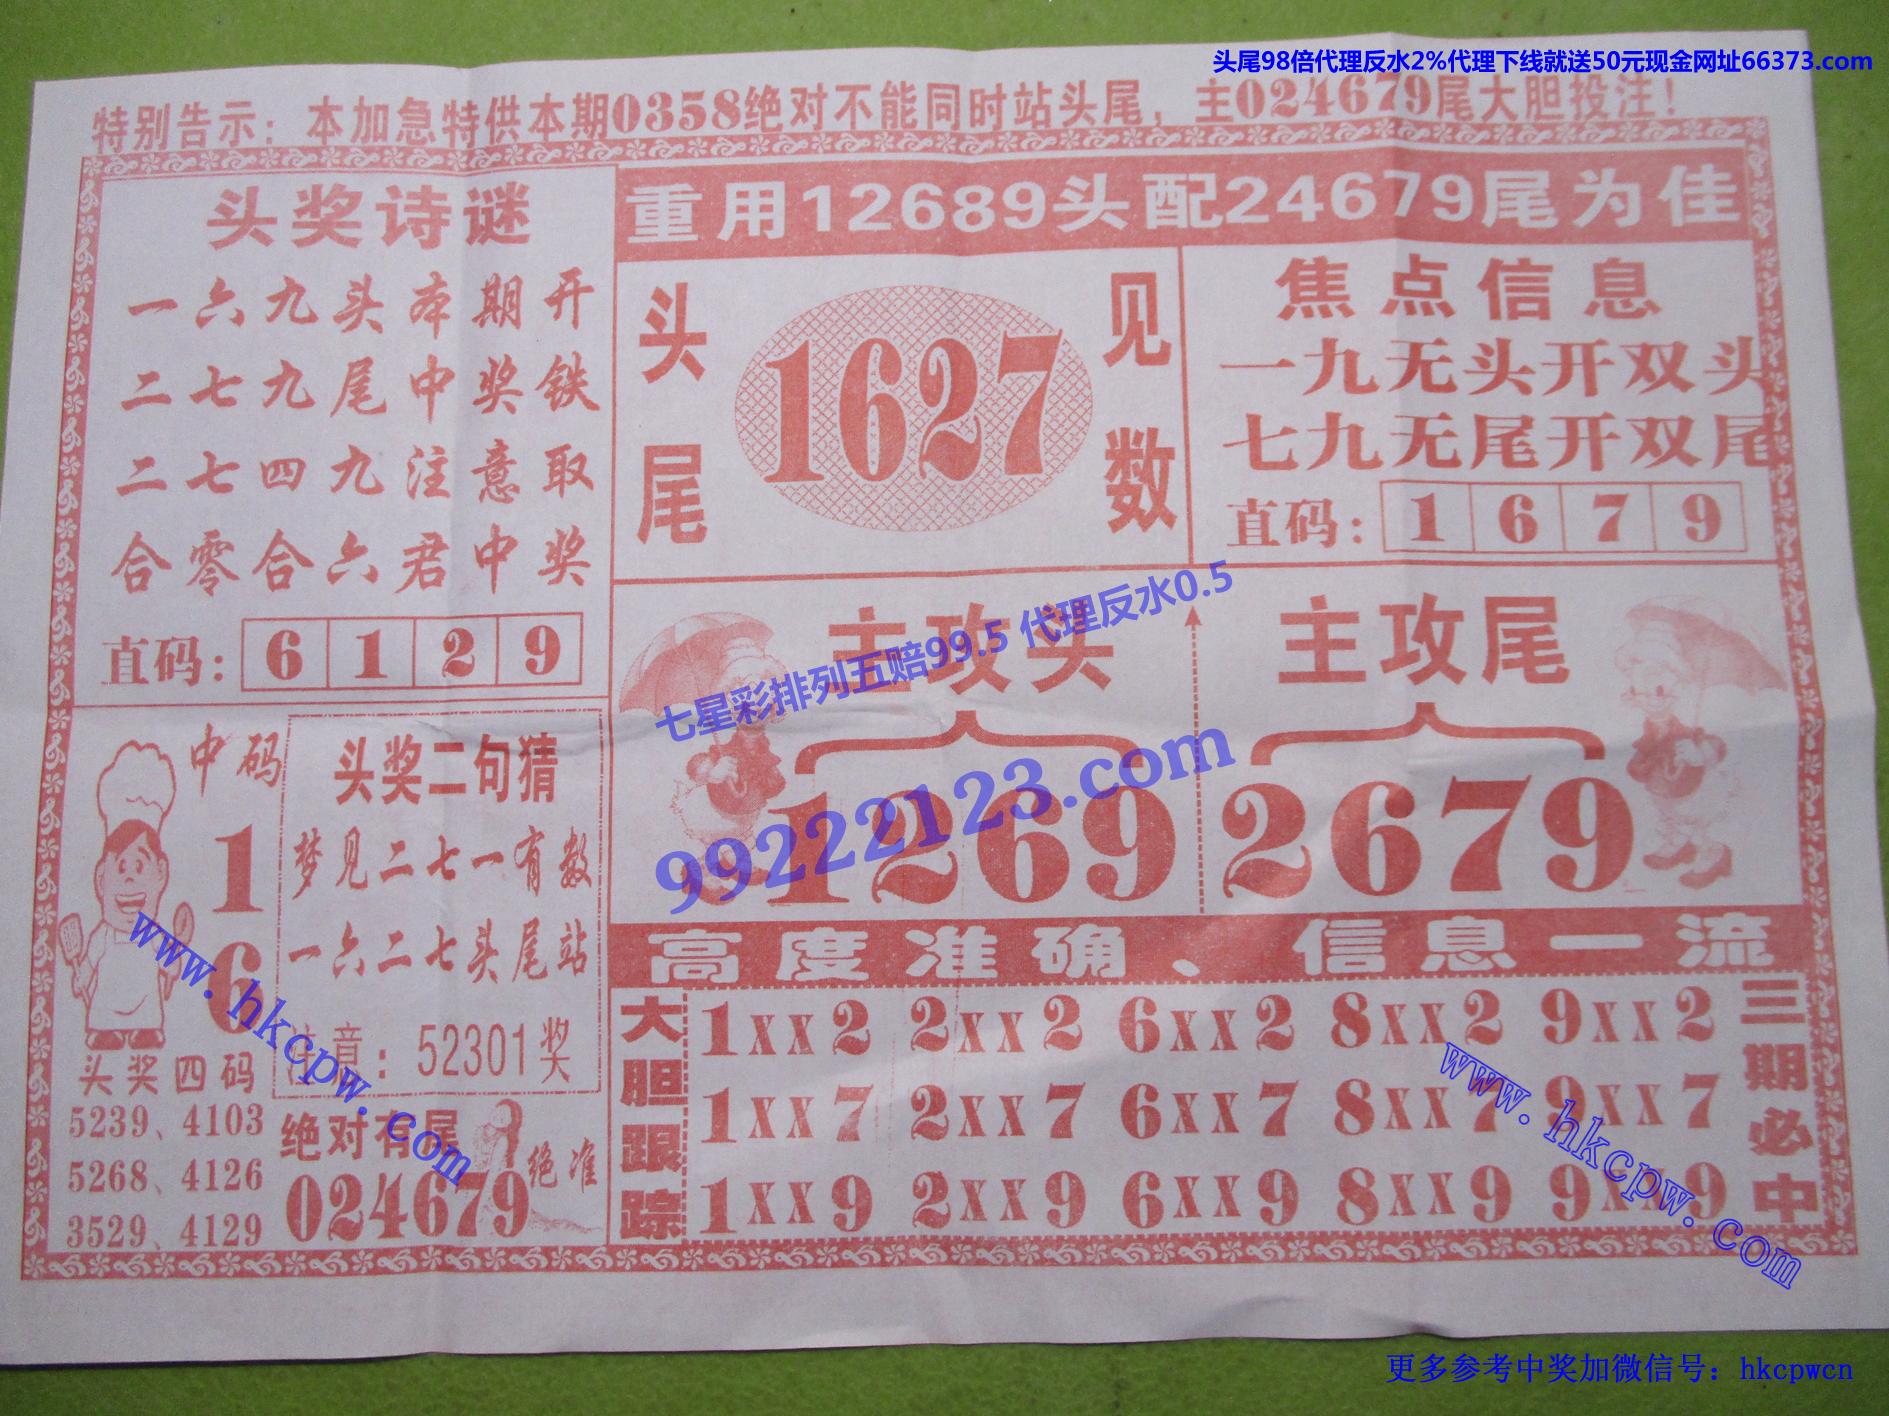 头尾98倍代理反水2%代理下线就送50元现金网址66373.com
特别告示：本加急特供本期0358绝对不能同时站头尾，主024679尾大胆投注！
头奖诗谜
一六九头本期开
二七九尾中奖铁
二七四九注意取
合零合六君中奖
直码：6129
重用12689头配24679尾为佳
头尾
1627
见数
焦点信息
一九无头开双头
七九无尾开双尾
直码：1679
主攻头
1269
主攻尾
2679
七星彩排列五赔99.5 代理反水0.5
99222123.com
中码
1
6
头奖四码
5239、4103
5268、4126
3529、4129
头奖二句猜
梦见二七一有数
一六二七头尾站
注意：52301奖
绝对有尾
024679
绝准
高度准确、信息一流
大胆跟踪
1xx2 2xx2 6xx2 8xx2 9xx2
1xx7 2xx7 6xx7 8xx7 9xx7
1xx9 2xx9 6xx9 8xx9 9xx9
三期必中
www.hkcpw.com
www.hkcpw.com
更多参考中奖加微信号：hkcpwcn